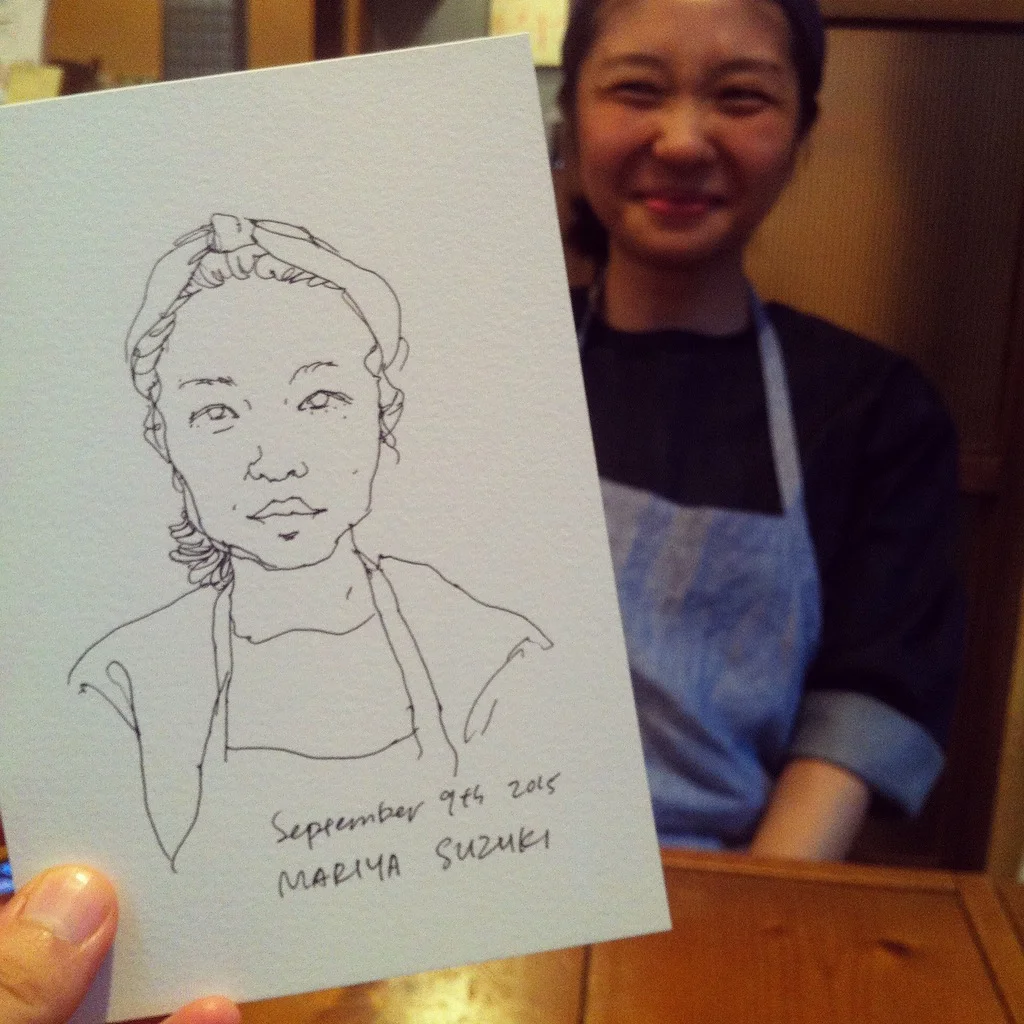 September 9th 2015
MARIYA SUZUKI